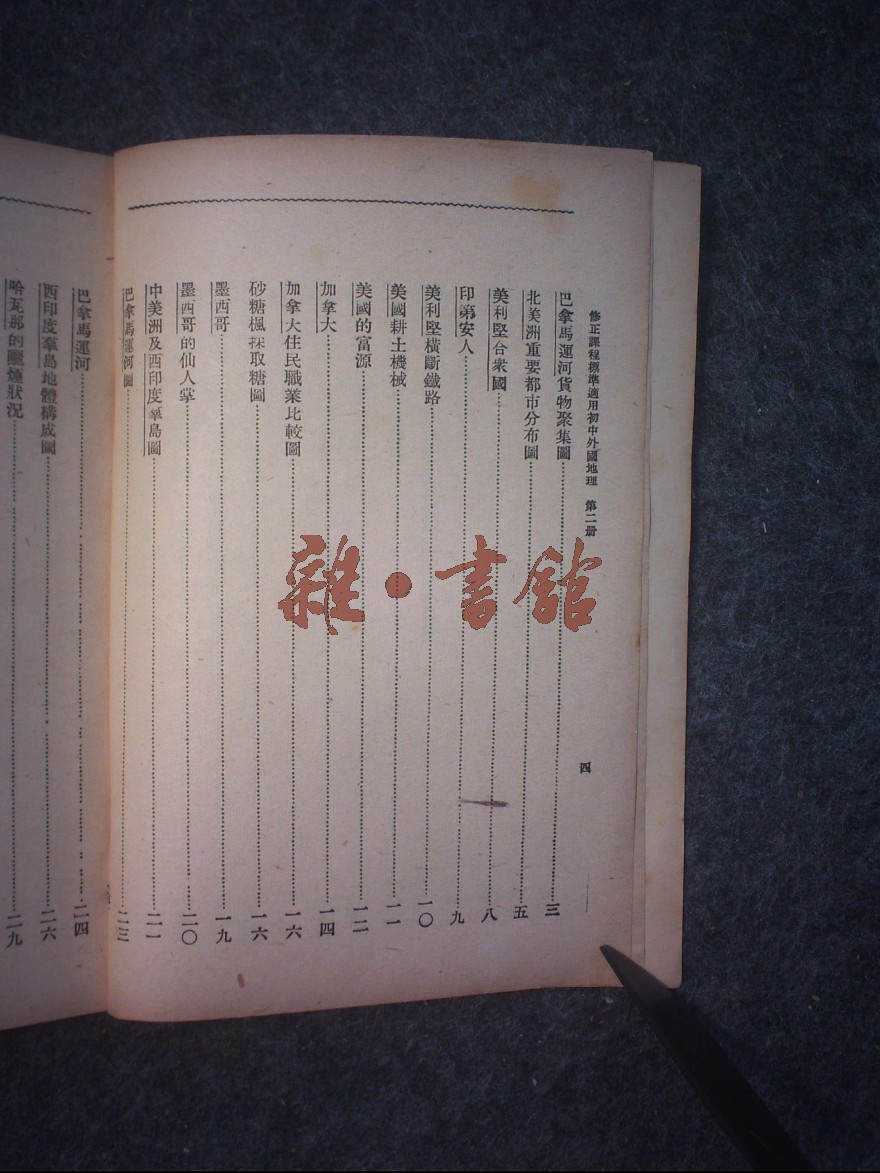 修正課程標準適用初中外國地理 第二册
四
巴拿馬運河貨物聚集圖……三
北美洲重要都市分布圖……五
美利堅合衆國……八
印第安人……九
美利堅橫斷鐵路……一〇
美國耕土機械……一一
美國的富源……一二
加拿大……一四
加拿大住民職業比較圖……一六
砂糖楓採取糖圖……一六
墨西哥……一九
墨西哥的仙人掌……二〇
中美洲及西印度羣島圖……二一
巴拿馬運河圖……二三
巴拿馬運河……二四
西印度羣島地體構成圖……二六
哈瓦那的曬煙狀況……二九
雜·書館